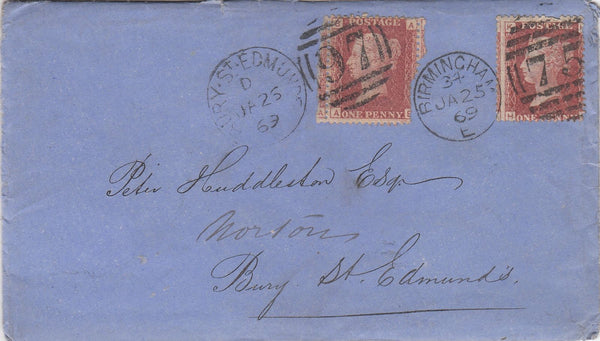 BURY ST. EDMUNDS
D
JA 26
69
POSTAGE
ONE PENNY
97
BIRMINGHAM
34
JA 25
69
E
POSTAGE
ONE PENNY
75
Peter Huddleston Esqr
Norton
Bury St. Edmund's.